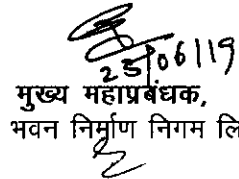 25/06/19
मुख्य महाप्रबंधक,
भवन निर्माण निगम लि